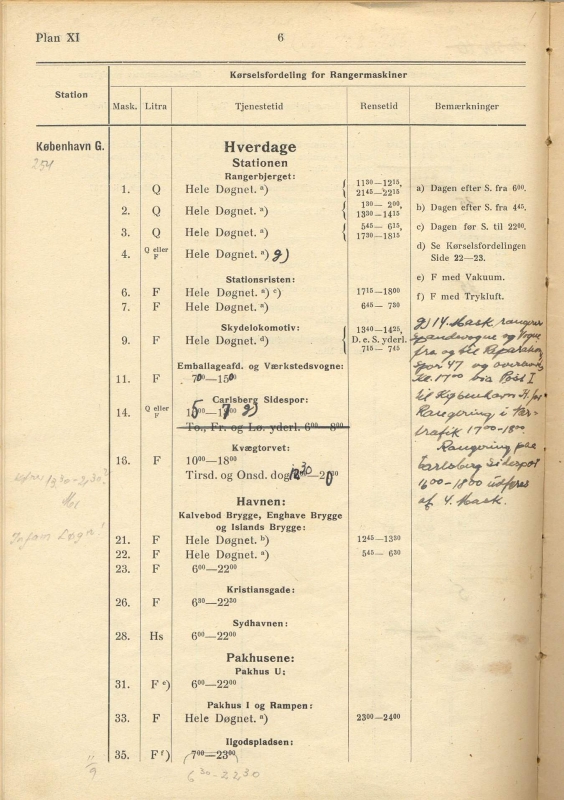 Plan XI
6
Kørselsfordeling for Rangermaskiner
Station
Mask. Litra Tjenestetid Rensetid Bemærkninger
København G.
254
Hverdage
Stationen
Rangerbjerget:
1. Q Hele Døgnet. a) 11 30—12 15, 21 45—22 15
2. Q Hele Døgnet. a) 1 30— 2 00, 13 30—14 15
3. Q Hele Døgnet. a) 5 45— 6 15, 17 30—18 15
4. Q eller F Hele Døgnet. a) g)
a) Dagen efter S. fra 6 00.
b) Dagen efter S. fra 4 45.
c) Dagen før S. til 22 00.
d) Se Kørselsfordelingen
Side 22—23.
e) F med Vakuum.
f) F med Trykluft.
Stationsristen:
6. F Hele Døgnet. a) c) 17 15—18 00
7. F Hele Døgnet. a) 6 45— 7 30
Skydelokomotiv:
9. F Hele Døgnet. d) 13 40—14 25, D. e. S. yderl. 7 15— 7 45
Emballageafd. og Værkstedsvogne:
11. F 7 00—15 00
Carlsberg Sidespor:
14. Q eller F 15 00—17 00 g)
To., Fr. og Lø. yderl. 6 00— 8 00
g) 14. Mask. rangerer
og Vogne
fra og til
Spor 47 og
Kl. 17 00 via Post I
til København H. for
Rangering i
trafik 17 00—18 00.
Rangering paa
Carlsberg Sidespor
16 00—18 00 udføres
af 4. Mask.
Kvægtorvet:
16. F 10 00—18 00
Tirsd. og Onsd. dog 12 30—20 00
Havnen:
Kalvebod Brygge, Enghave Brygge
og Islands Brygge:
21. F Hele Døgnet. b) 12 45—13 30
22. F Hele Døgnet. a) 5 45— 6 30
23. F 6 00—22 00
Kristiansgade:
26. F 6 30—22 30
Sydhavnen:
28. Hs 6 00—22 00
Pakhusene:
Pakhus U;
31. F e) 6 00—22 00
Pakhus I og Rampen:
33. F Hele Døgnet. a) 23 00—24 00
Ilgodspladsen:
35. F f) (7 00—23 00)
6 30-22 30
11/9